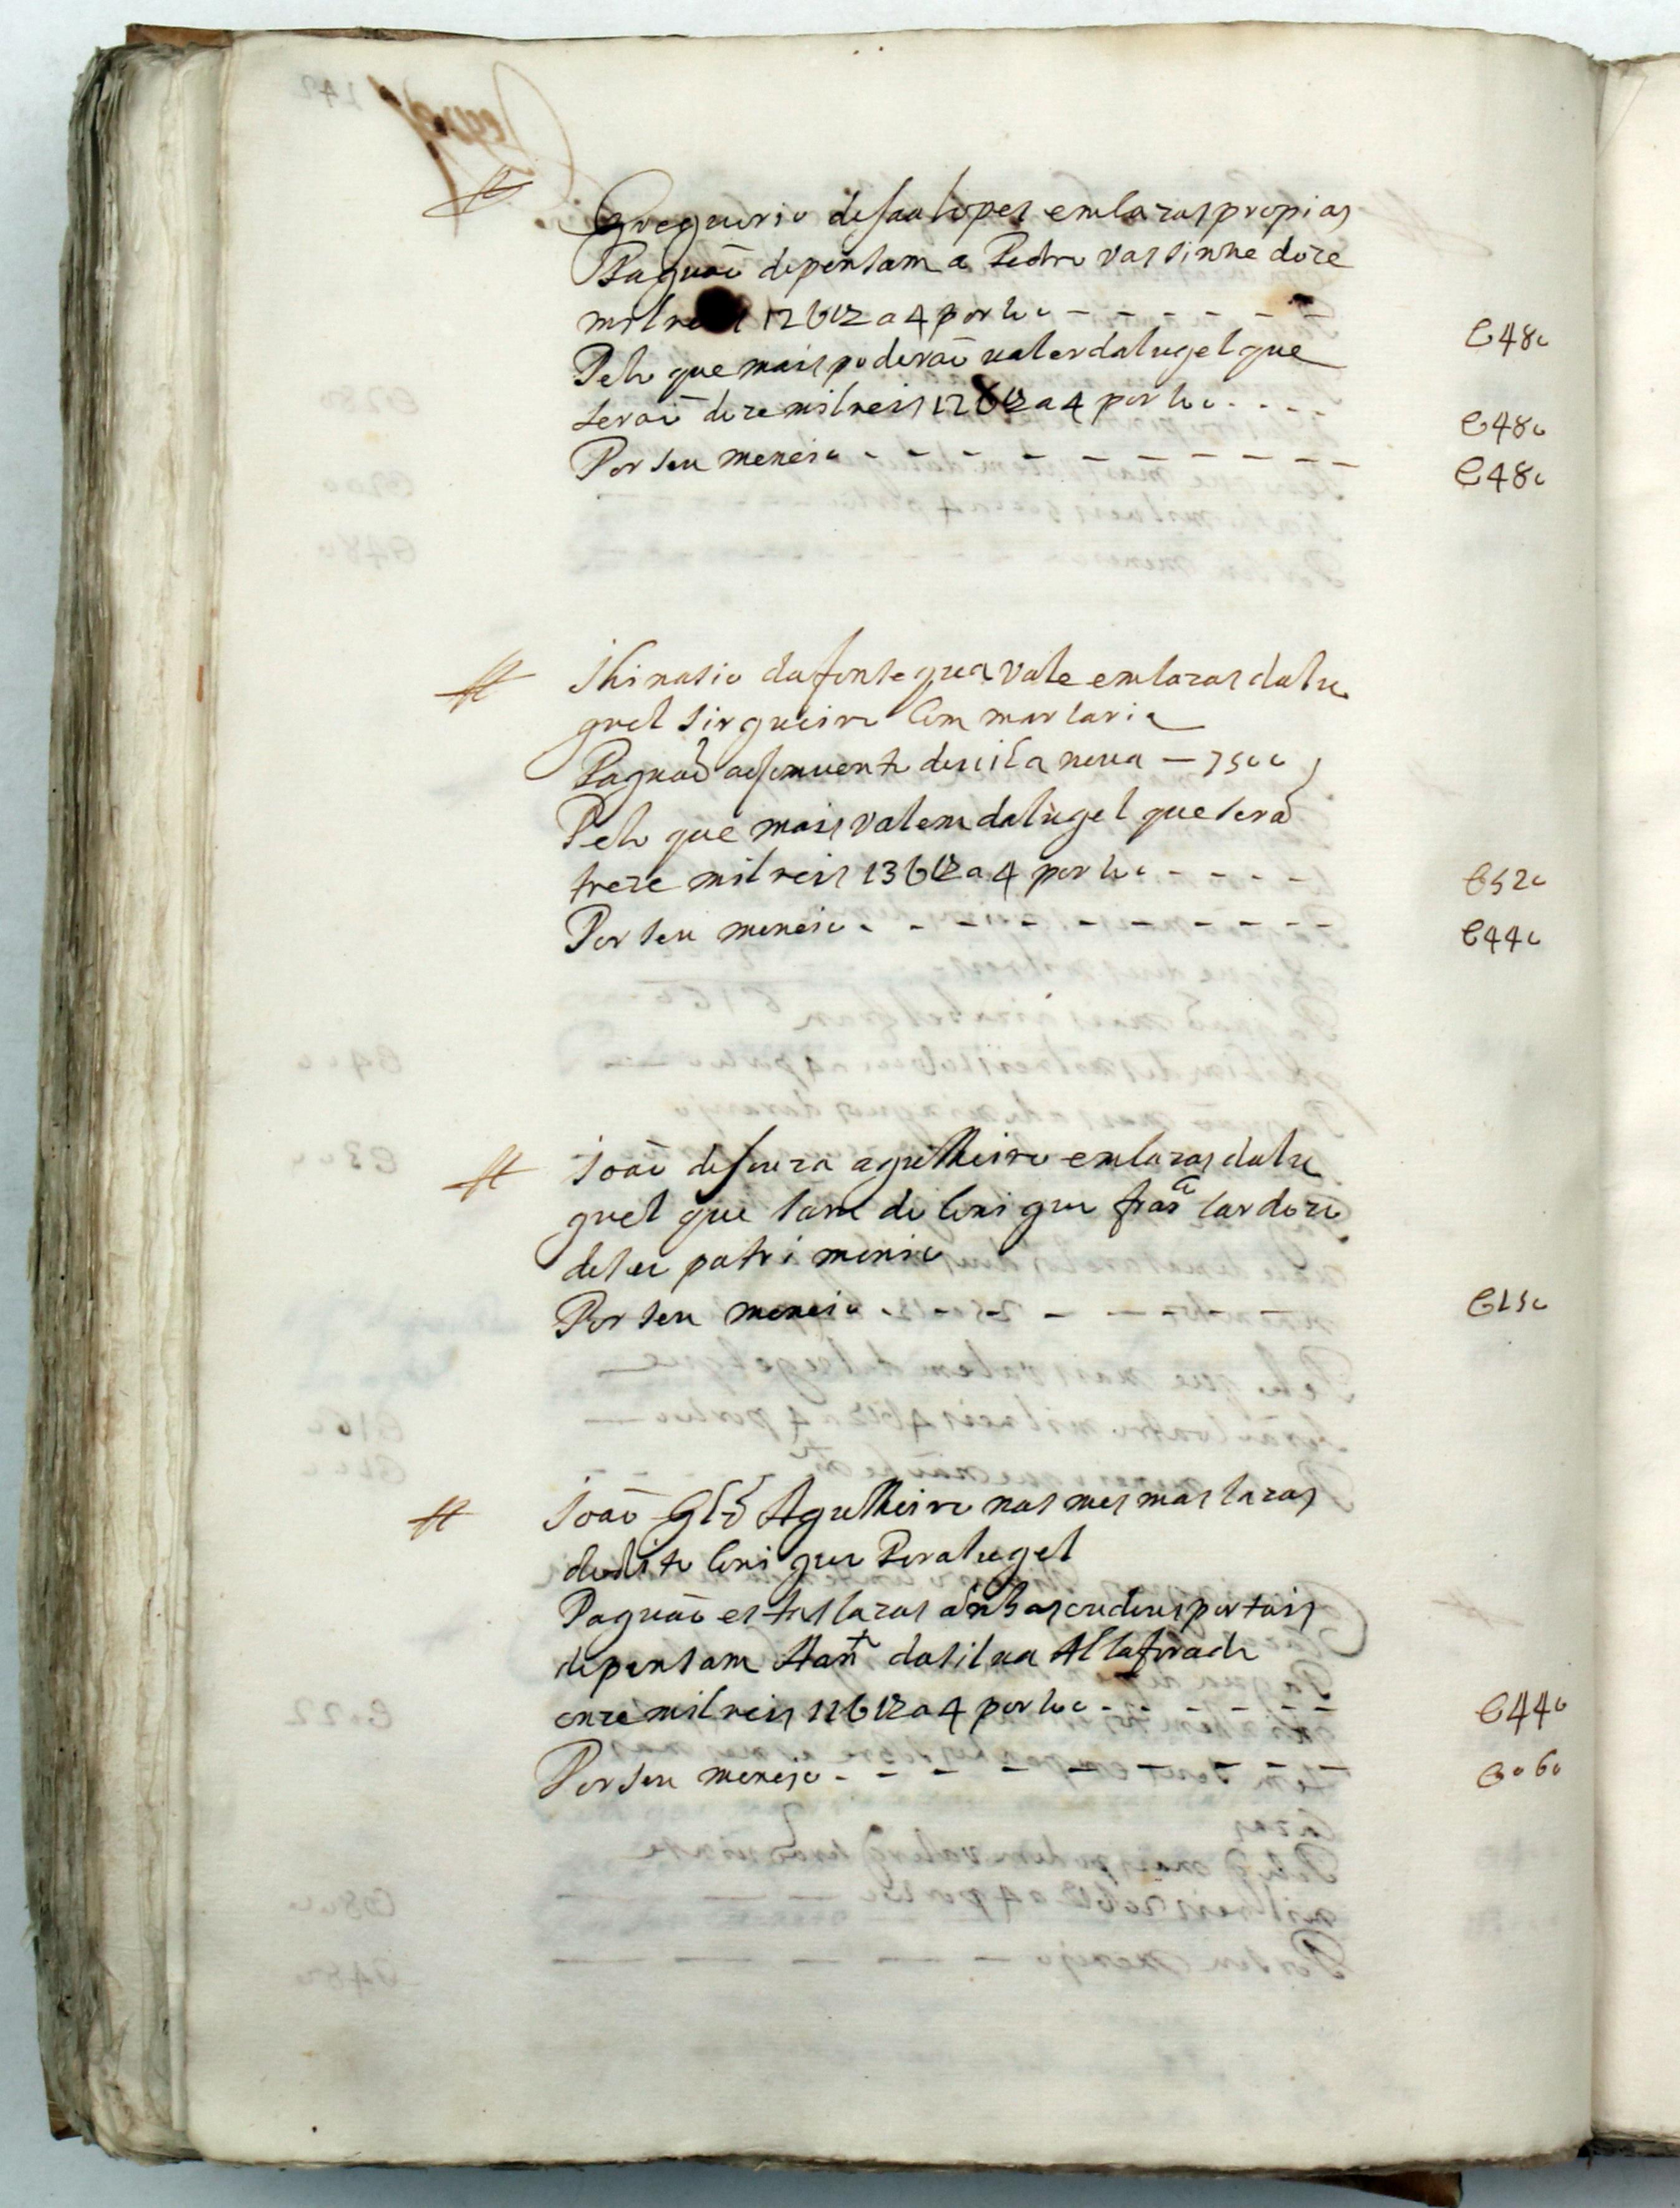 Greguorio desaa lopes em cazas propias
Paguaõ depensam a Pedro vas sinhe doze
mil reis 12 U a 4 por co
C480
Pelo que mais poderaõ ualer daluguel que
seraõ doze mil reis 12 U a 4 por co
C480
Por seu meneio
C480
Ihinasio dafonsequa vale em cazas dalu
guel sirgueiro com marsaria
Paguaõ aoconuento de uila noua — 7500
Pelo que mais valem daluguel que seraõ
treze mil reis 13 U a 4 por co
C520
Por seu meneio
C440
Joaõ de souza agulheiro em cazas dalu
guel que sam do Conigou fraᶜᵒ cardozo
deseu patrimonio
Por seu meneio
C150
Joaõ Glz Agulheiro nas mesmas cazas
dodito Conigou Por aluguel
Paguaõ estas cazas anbas em dous portais
depensam Anᵗ dasilua Allaforado
onze mil reis 11 U a 4 por co
C440
Por seu meneio
C060